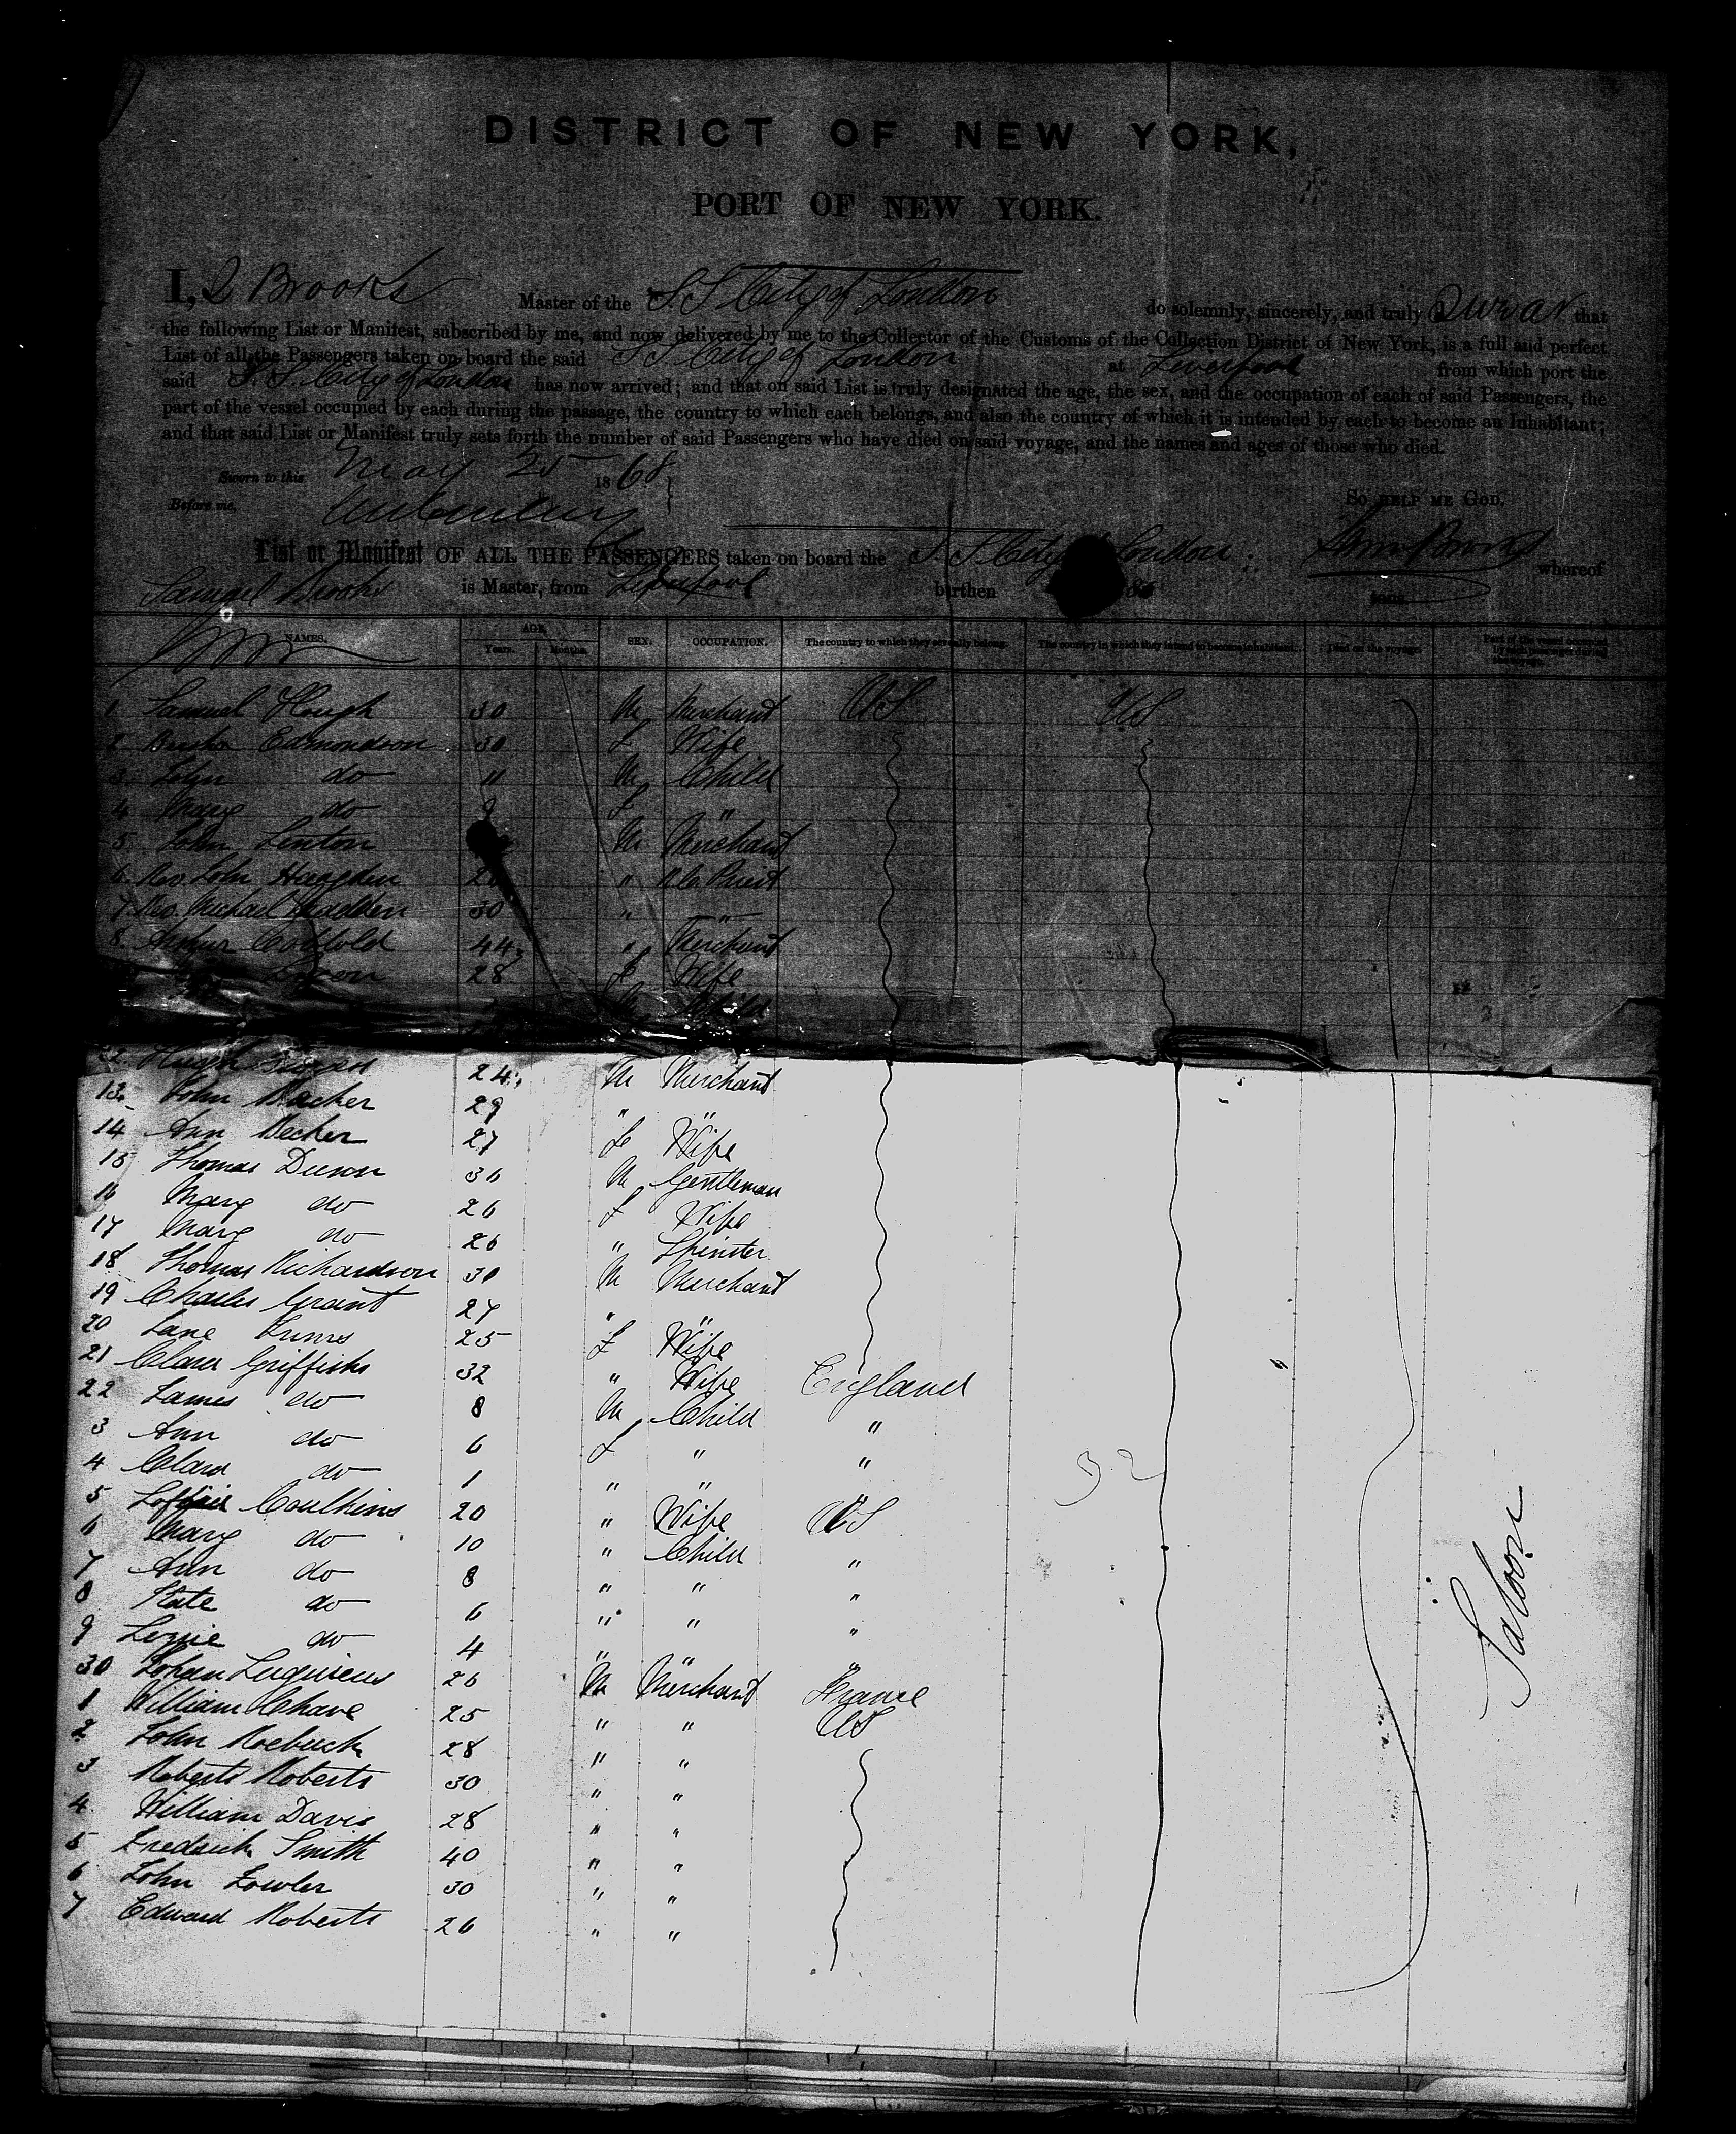 DISTRICT OF NEW YORK,
PORT OF NEW YORK.
I, S Brooks Master of the S.S. City of London do solemnly, sincerely, and truly swear that
the following List or Manifest, subscribed by me, and now delivered by me to the Collector of the Customs of the Collection District of New York, is a full and perfect
List of all the Passengers taken on board the said S S City of London at Liverpool from which port the
said S. S. City of London has now arrived; and that on said List is truly designated the age, the sex, and the occupation of each of said Passengers, the
part of the vessel occupied by each during the passage, the country to which each belongs, and also the country of which it is intended by each to become an Inhabitant;
and that said List or Manifest truly sets forth the number of said Passengers who have died on said voyage, and the names and ages of those who died.
Sworn to this May 25 1868
So help me God.
Before me,
List or Manifest OF ALL THE PASSENGERS taken on board the S. S. City London whereof
Samuel Brooks is Master, from Liverpool burthen tons.
NAMES. AGE. Years. Months. SEX. OCCUPATION. The country to which they severally belong. The country in which they intend to become inhabitants. Died on the voyage. Part of the vessel occupied by each passenger during the voyage.
1 Samuel Hough 30 M Merchant US US
2 Edmondson 30 F Wife
3 John do 11 M Child
4 Mary do 9 F "
5 John Linton M Merchant
6 Rev. John " R.C. Priest
7 Rev. Michael Madden 30 " "
8 Arthur Cobbold 44 " Merchant
28 F Wife
M Child
Hugh 24 M Merchant
13. John Becker 29 " "
14 Ann Becker 27 F Wife
15 Thomas Dunn 36 M Gentleman
16 Mary do 26 F Wife
17 Mary do 26 " Spinster
18 Thomas Richardson 30 M Merchant
19 Charles Grant 27 " "
20 Jane 25 F Wife
21 Clara Griffiths 32 " Wife England "
22 James do 8 M Child "
3 Ann do 6 F " "
4 Clara do 1 " " " 32
5 Coulkins 20 " Wife US
6 Mary do 10 " Child "
7 Ann do 8 " " "
8 Kate do 6 " " "
9 Lizzie do 4 " " "
30 Johan 26 M Merchant France
1 William Chave 25 " " US
2 John Roebuck 28 " "
3 Roberts Roberts 30 " "
4 William Davis 28 " "
5 Fredrick Smith 40 " "
6 John Fowler 30 " "
7 Edward Roberts 26 " "
Saloon